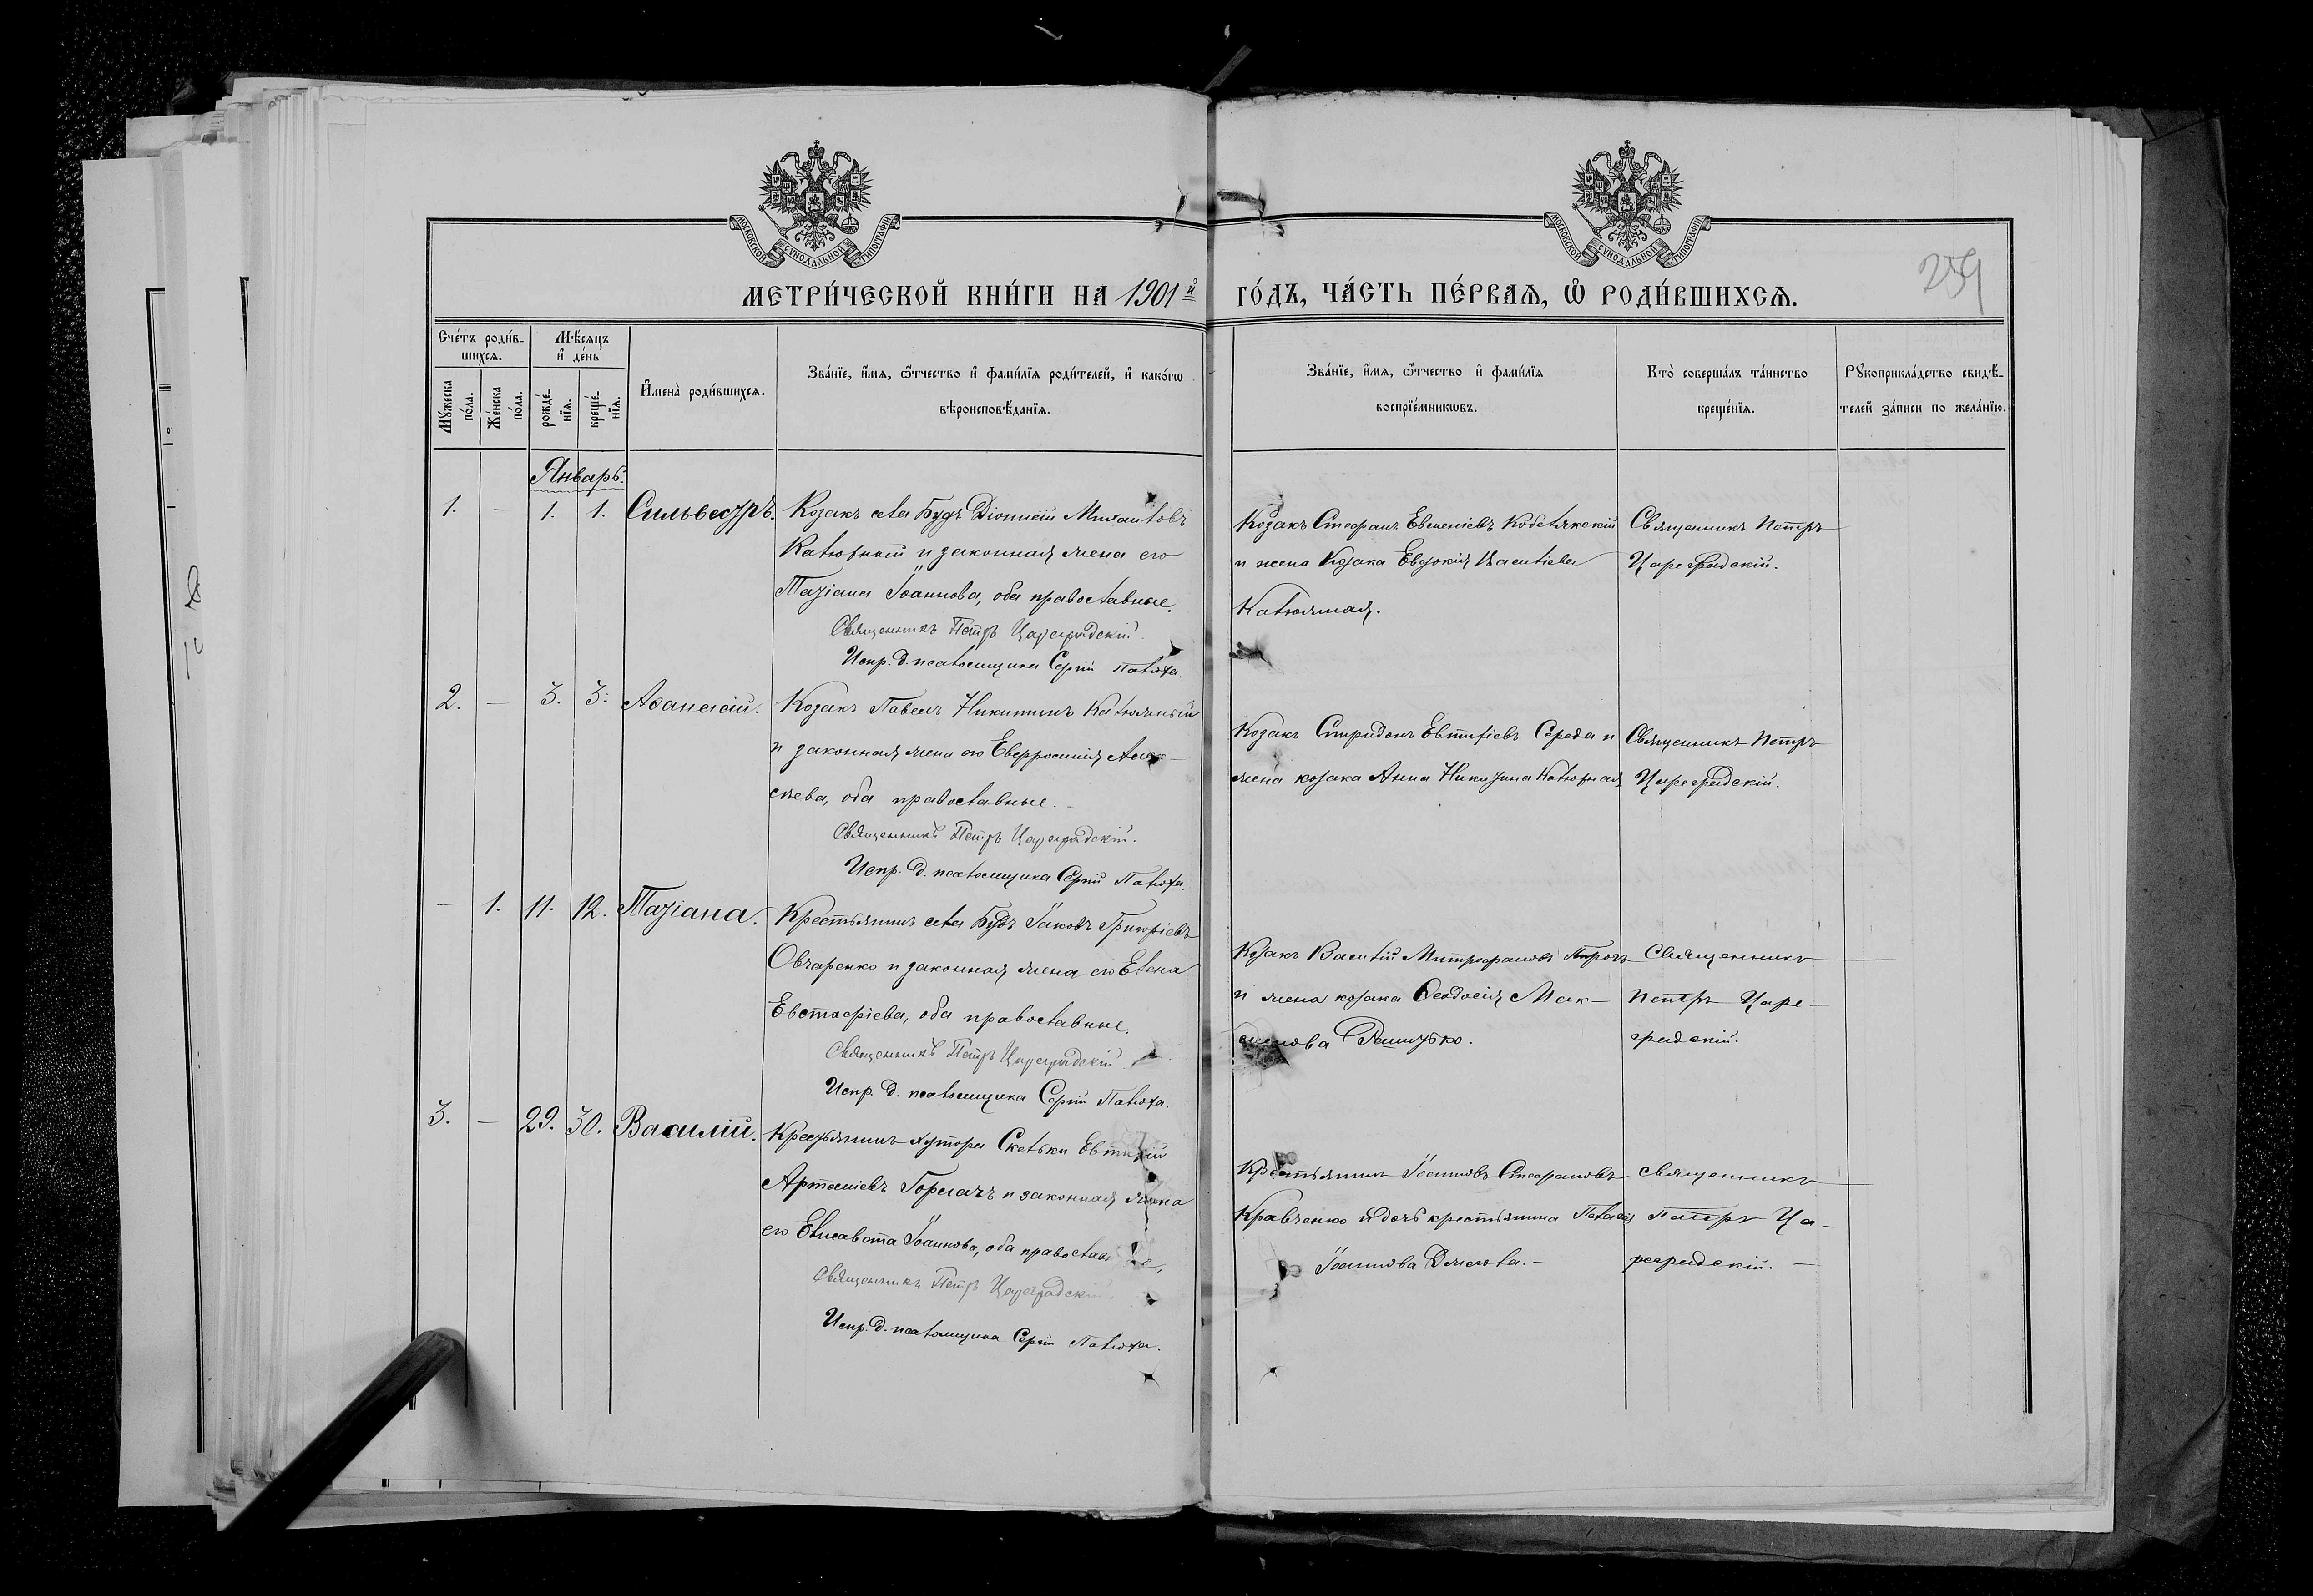 МОСКОВСКОЙ СѴНОДАЛЬНОЙ ТИПОГРАФІИ
МОСКОВСКОЙ СѴНОДАЛЬНОЙ ТИПОГРАФІИ
259
МЕТРИ́ЧЕСКОЙ КНИ́ГИ НА 1901й ГО́ДЪ, ЧА́СТЬ ПЕ́РВАЯ, Ѽ РОДИ́ВШИХСЯ.
Сче́тъ роди́в-
шихся.
Мѣ́сяцъ
и҆ де́нь
Мꙋ́жеска
по́ла.
Же́нска
по́ла.
рожде́-
нїя.
креще́-
нїя.
И҆мена̀ роди́вшихся.
Зва́нїе, и҆́мя, ѻ҆́тчество и҆ фами́лїя роди́телей, и҆ како́гѡ
вѣроисповѣ́данїя.
Зва́нїе, и҆́мя, ѻ҆́тчество и҆ фами́лїя
воспрїе́мникѡвъ.
Кто̀ соверша́лъ та́инство
креще́нїя.
Рꙋкоприкла́дство свидѣ́-
телей за́писи по жела́нїю.
Январь.
1. — 1. 1. Сильвестръ.
Козакъ села Будъ Діонисій Михаиловъ
Калюжный и законная жена его
Татіана Іоаннова, оба православные.
Священникъ Петръ Цареградскій.
Испр. д. псаломщика Сергій
Козакъ Стефанъ
и жена козака Евдокія Василіева
Калюжная.
Священникъ Петръ
Цареградскій.
2. — 3. 3. Аѳанасій.
Козакъ Павелъ Никитинъ Калюжный
и законная жена его Евфросинія Алек-
сѣева, оба православные.
Священникъ Петръ Цареградскій.
Испр. д. псаломщика Сергій
Козакъ Спиридонъ Евтихіевъ Середа и
жена козака Анна Никитина Калюжная
Священникъ Петръ
Цареградскій.
— 1. 11. 12. Татіана.
Крестьянинъ села Будъ Іаковъ Григоріевъ
Овчаренко и законная жена его Елена
Евстафіева, оба православные.
Священникъ Петръ Цареградскій
Испр. д. псаломщика Сергій
Козакъ Василій Митрофановъ
и жена козака Ѳеодосія Мак-
симова
Священникъ
Петръ Царе-
градскій.
3. — 29. 30. Василій.
Крестьянинъ хутора Скельки Евтихій
Артеміевъ Горкачъ и законная жена
его Елисавета Іоаннова, оба православные,
Священникъ Петръ Цареградскій
Испр. д. псаломщика Сергій
Крестьянинъ Іоанновъ Стефановъ
Кравченко и дочь крестьянина Пелагія
Іоаннова
Священникъ
Петръ Ца-
реградскій. —